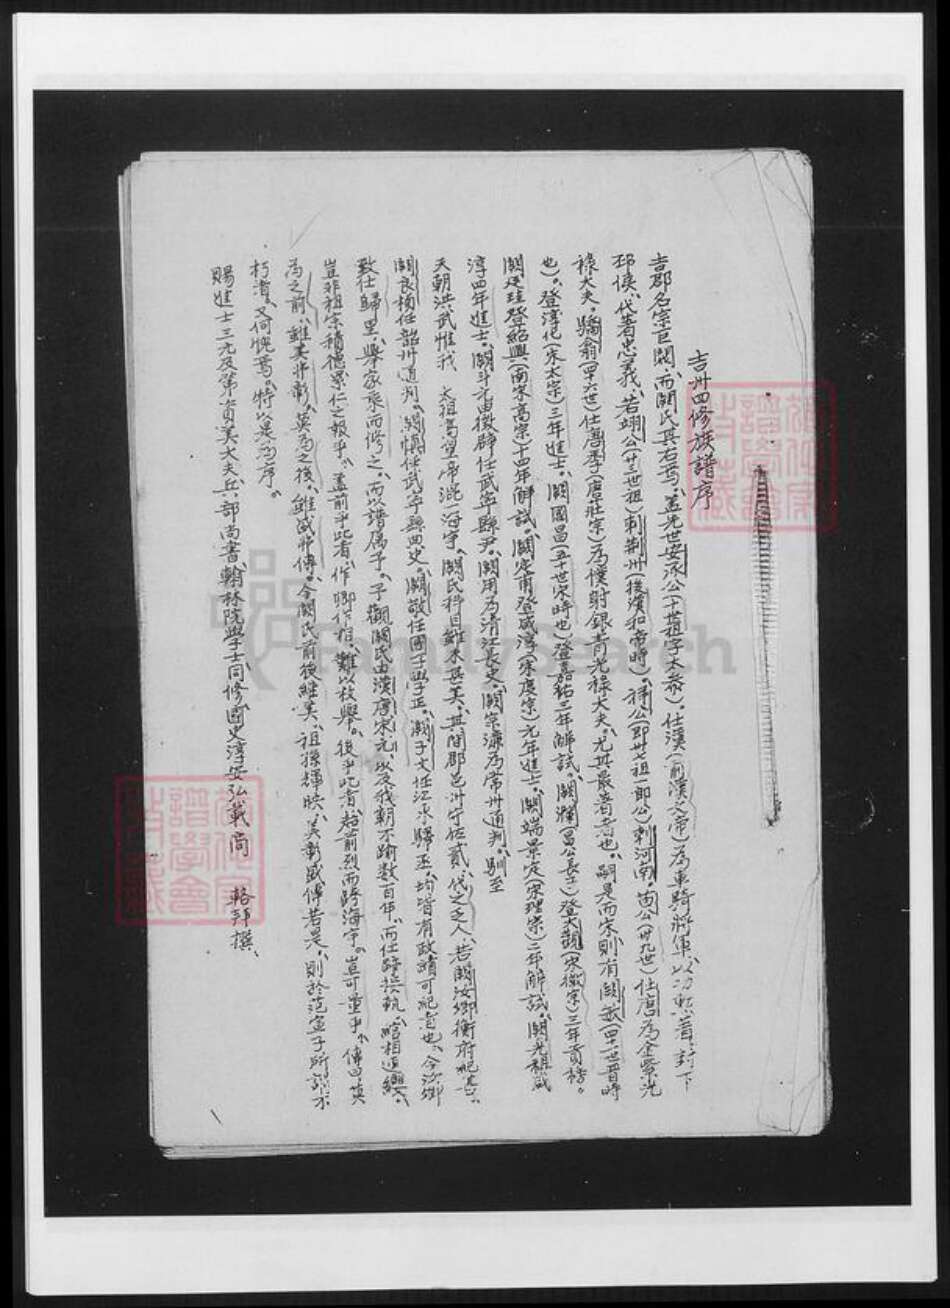 吉州四修族譜序
吉郡名宗巨闕、而闕氏其右焉、蓋先世安承公(十世祖字太泰)仕漢(前漢文帝)為車騎將軍、以功烈著、封下
邳侯、代著忠義、若翊公(廿三世祖)刺荆州(後漢和帝時)。祥公(即廿七祖一郎公)刺河南。茵公(卅九世)仕唐為金紫光
祿大夫、驕翁(四十六世)仕唐季(唐莊宗)為僕射銀青光祿大夫、尤其最著者也、嗣是而宋則有闕 (四十一世晋時
也)。登淳化(宋太宗)三年進士、闕國昌(五十世宋時也)登嘉祐三年解試。闕瀾(昌公長子)登大觀(宋徽宗)三年貢榜。
闕廷珪登紹興(南宋高宗)十四年解試。闕定甫登咸淳(宋度宗)元年進士、闕端景定(宋理宗)二年解試、闕光祖咸
淳四年進士。闕斗元由徵辟任武寧縣尹。闕用為清江長史、闕宗濂為常州通判、馴至
天朝洪武惟我 太祖高皇帝混一海宇、闕氏科目雖未甚美、其間郡邑州守佐貳、代之乏人、若闕汝卿衡府紀善、
闕良楨任韶州通判。闕慎任武寧縣典史。闕敬任國子學正。闕子文任江水縣丞、均皆有政績可紀者也、今汝卿
致仕歸里、舉家乘而修之、而以譜屬予。予觀闕氏由漢唐宋元、以及我朝不踰數百年、而仕蹟接軌、 相遞興、
豈非祖宗積德累仁之報乎。蓋前乎此者、作卿作相、難以枚舉。後乎此者、趁前烈而跨海宇。豈可量乎。傳曰莫
為之前、雖美弗彰、莫為之後、雖盛弗傳。今闕氏前後繼美、祖孫輝映、美彰盛傳若是、則於范宣子所謂不
朽者、又何愧焉。特以是為序。
賜進士三元及第資善大夫兵部尚書翰林院學士同修國史淳安弘載商 輅拜撰、
FamilySearch